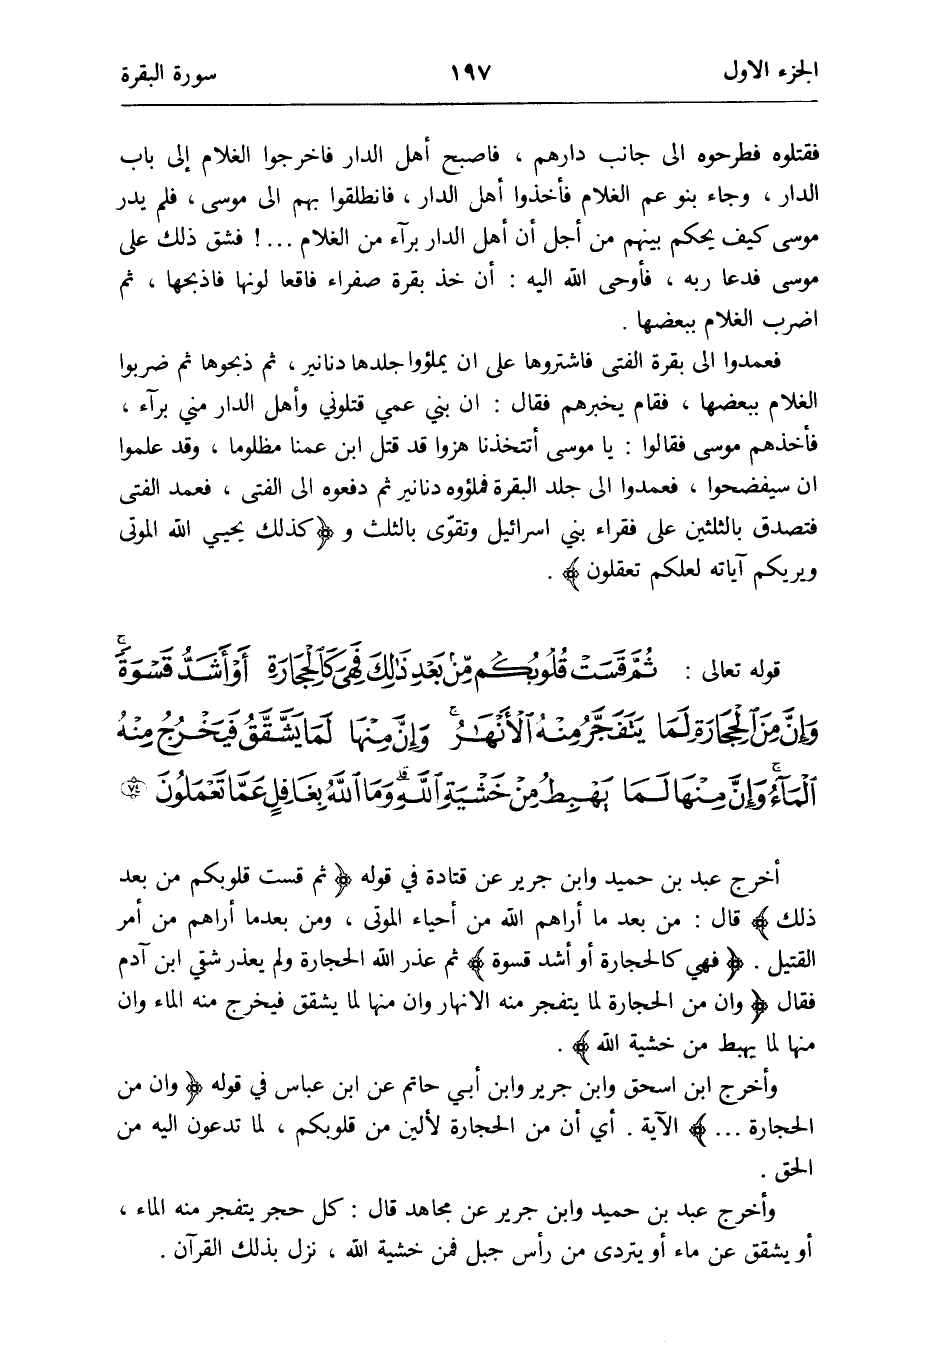 الجزء الاول ١٩٧ سورة البقرة
فقتلوه فطرحوه الى جانب دارهم ، فاصبح أهل الدار فاخرجوا الغلام إلى باب
الدار ، وجاء بنو عم الغلام فأخذوا أهل الدار ، فانطلقوا بهم الى موسى ، فلم يدر
موسى كيف يحكم بينهم من أجل أن أهل الدار برآء من الغلام ...! فشق ذلك على
موسى فدعا ربه ، فأوحى الله اليه : أن خذ بقرة صفراء فاقعا لونها فاذبحها ، ثم
اضرب الغلام ببعضها .
فعمدوا الى بقرة الفتى فاشتروها على ان يملؤوا جلدها دنانير ، ثم ذبحوها ثم ضربوا
الغلام ببعضها ، فقام يخبرهم فقال : ان بني عمي قتلوني وأهل الدار مني برآء ،
فأخذهم موسى فقالوا : يا موسى أتتخذنا هزوا قد قتل ابن عمنا مظلوما ، وقد علموا
ان سيفضحوا ، فعمدوا الى جلد البقرة فملؤوه دنانير ثم دفعوه الى الفتى ، فعمد الفتى
فتصدق بالثلثين على فقراء بني اسرائيل وتقوّى بالثلث و ﴿ كذلك يحيي الله الموتى
ويريكم آياته لعلكم تعقلون ﴾ .
قوله تعالى : ثُمَّ قَسَتْ قُلُوبُكُم مِّنۢ بَعْدِ ذَٰلِكَ فَهِىَ كَٱلْحِجَارَةِ أَوْ أَشَدُّ قَسْوَةًۚ
وَإِنَّ مِنَ ٱلْحِجَارَةِ لَمَا يَتَفَجَّرُ مِنْهُ ٱلْأَنْهَٰرُۚ وَإِنَّ مِنْهَا لَمَا يَشَّقَّقُ فَيَخْرُجُ مِنْهُ
ٱلْمَآءُۚ وَإِنَّ مِنْهَا لَمَا يَهْبِطُ مِنْ خَشْيَةِ ٱللَّهِۗ وَمَا ٱللَّهُ بِغَٰفِلٍ عَمَّا تَعْمَلُونَ ٧٤
أخرج عبد بن حميد وابن جرير عن قتادة في قوله ﴿ ثم قست قلوبكم من بعد
ذلك ﴾ قال : من بعد ما أراهم الله من أحياء الموتى ، ومن بعدما أراهم من أمر
القتيل . ﴿ فهي كالحجارة أو أشد قسوة ﴾ ثم عذر الله الحجارة ولم يعذر شقي ابن آدم
فقال ﴿ وان من الحجارة لما يتفجر منه الانهار وان منها لما يشقق فيخرج منه الماء وان
منها لما يهبط من خشية الله ﴾ .
وأخرج ابن اسحق وابن جرير وابن أبي حاتم عن ابن عباس في قوله ﴿ وان من
الحجارة ... ﴾ الآية . أي أن من الحجارة لألين من قلوبكم ، لما تدعون اليه من
الحق .
وأخرج عبد بن حميد وابن جرير عن مجاهد قال : كل حجر يتفجر منه الماء ،
أو يشقق عن ماء أو يتردى من رأس جبل فمن خشية الله ، نزل بذلك القرآن .